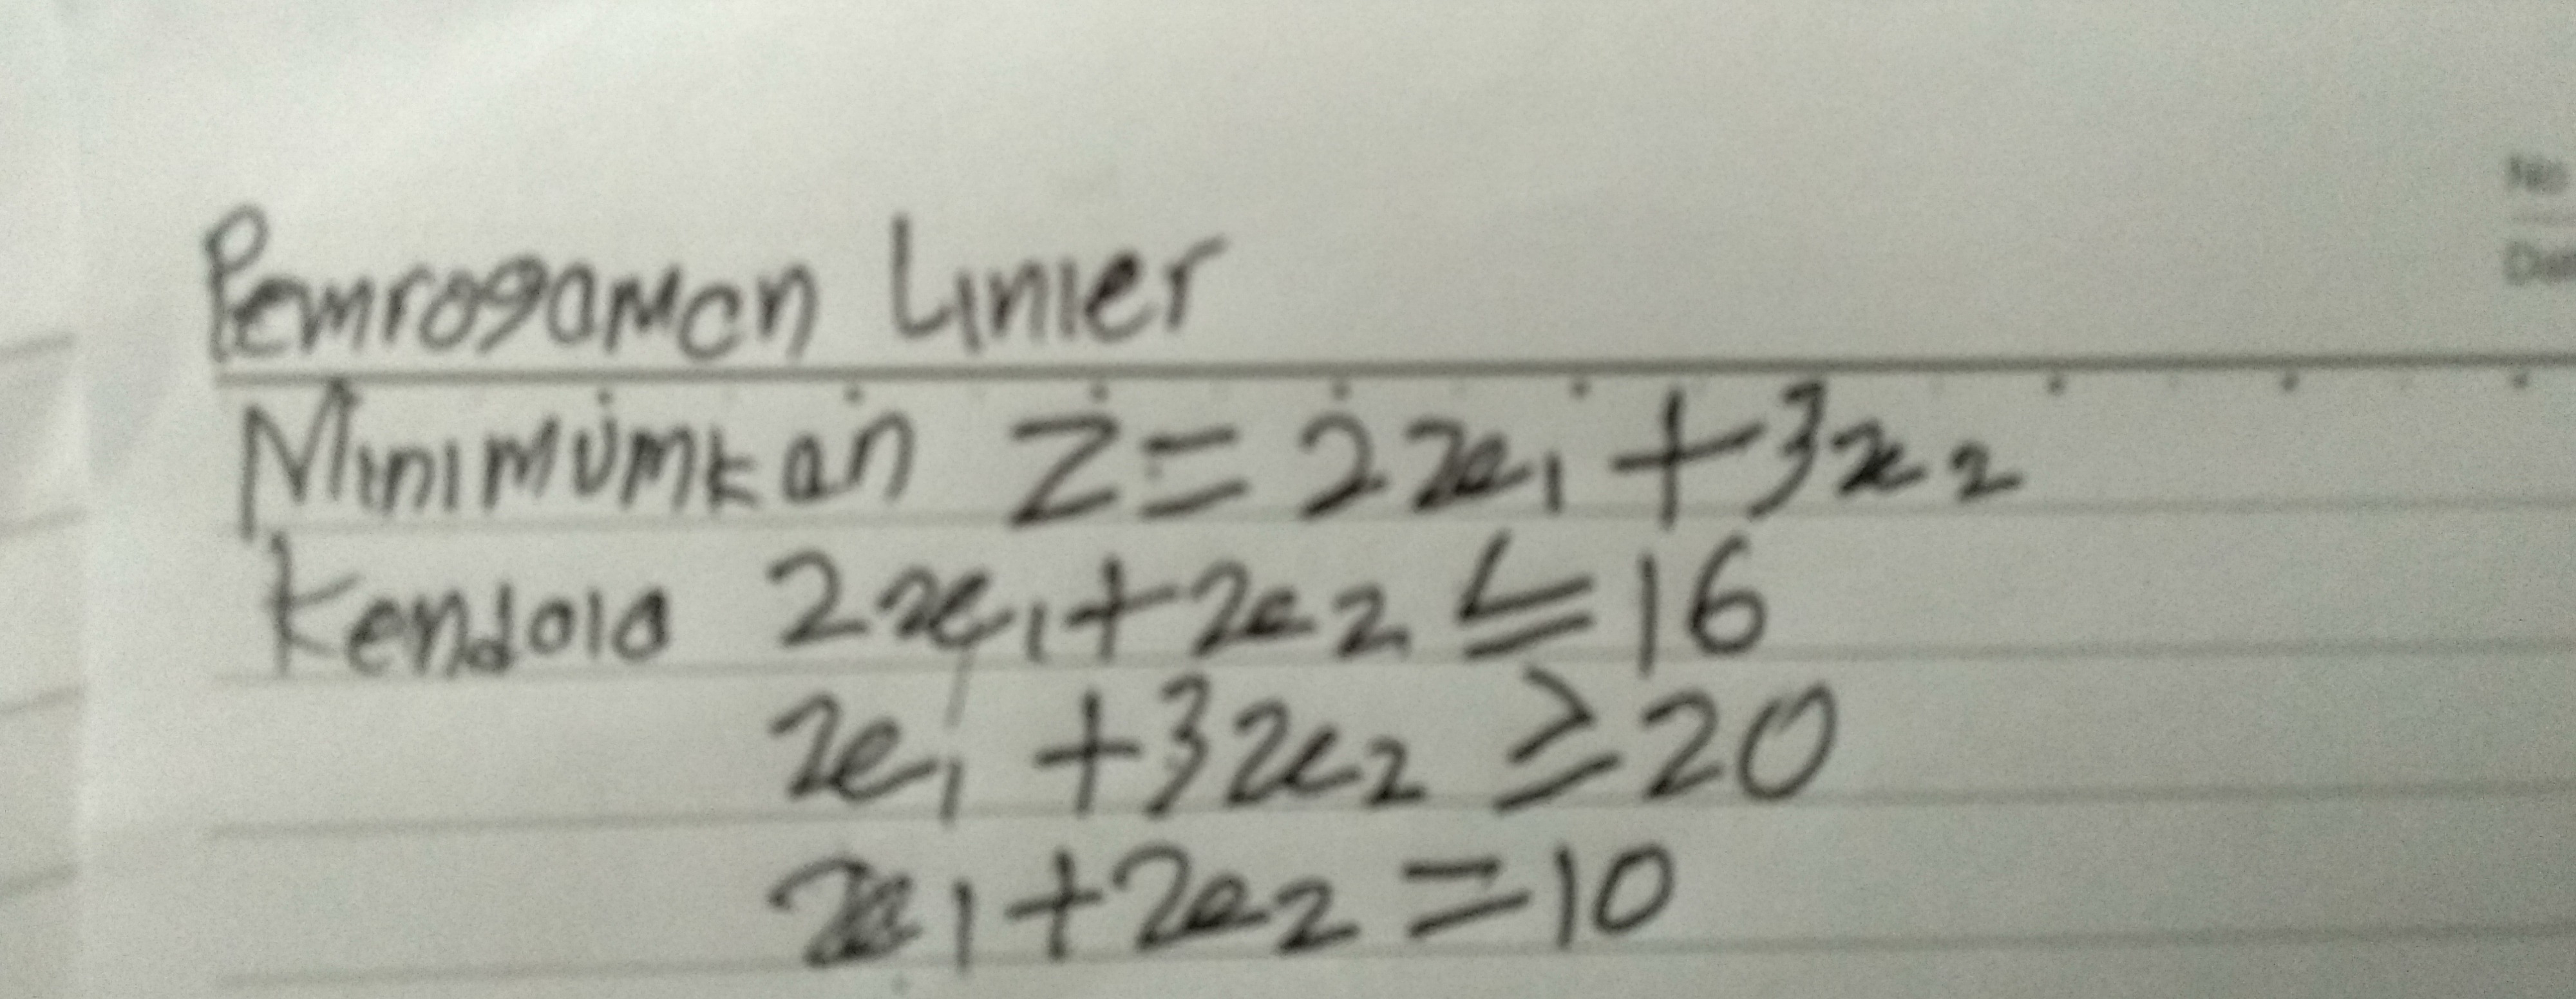 Pemrogaman Linier
No
Dat
Minimumkan Z = 2x₁ + 3x₂
Kendala 2x₁ + x₂ ≤ 16
x₁ + 3x₂ ≥ 20
x₁ + x₂ = 10